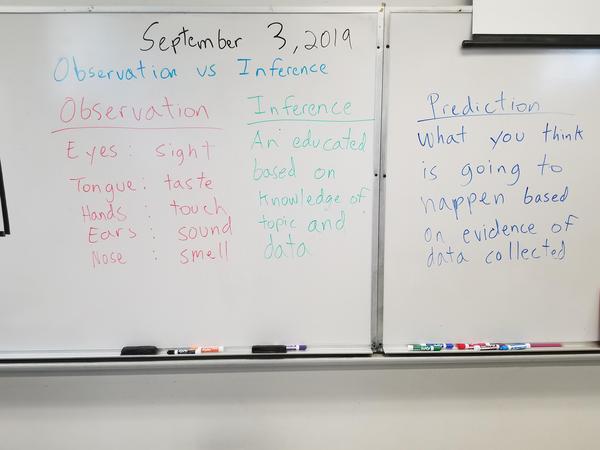 September 3, 2019
Observation vs Inference
Observation
Eyes: sight
Tongue: taste
Hands: touch
Ears: sound
Nose: smell
Inference
An educated
based on
knowledge of
topic and
data
Prediction
What you think
is going to
happen based
on evidence of
data collected